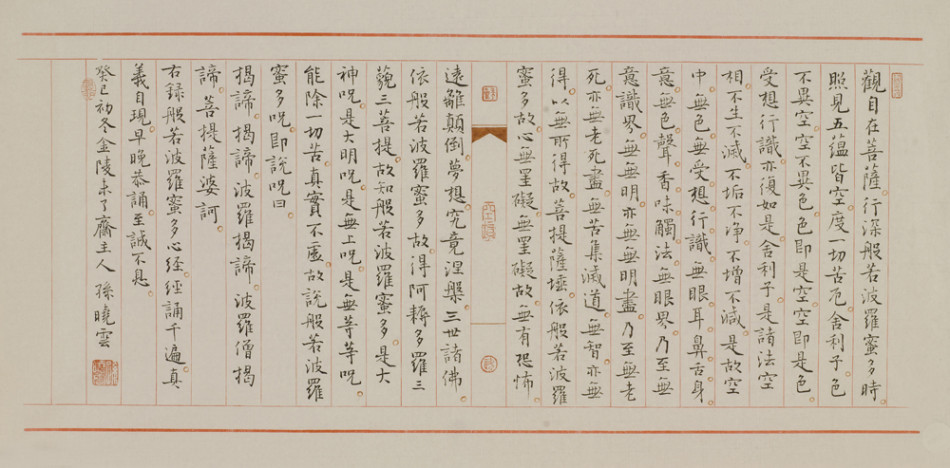 觀自在菩薩行深般若波羅蜜多時
照見五蘊皆空度一切苦厄舍利子色
不異空空不異色色即是空空即是色
受想行識亦復如是舍利子是諸法空
相不生不滅不垢不净不增不減是故空
中無色無受想行識無眼耳鼻舌身
意無色聲香味觸法無眼界乃至無
意識界無無明亦無無明盡乃至無老
死亦無老死盡無苦集滅道無智亦無
得以無所得故菩提薩埵依般若波羅
蜜多故心無罣礙無罣礙故無有恐怖
遠離顛倒夢想究竟涅槃三世諸佛
依般若波羅蜜多故得阿耨多羅三
藐三菩提故知般若波羅蜜多是大
神呪是大明呪是無上呪是無等等呪
能除一切苦真實不虛故說般若波羅
蜜多呪即說呪曰
揭諦揭諦波羅揭諦波羅僧揭
諦菩提薩婆訶
右録般若波羅蜜多心經經誦千遍真
義自現早晚恭誦至誠不息
癸巳初冬金陵未了齋主人孫曉雲